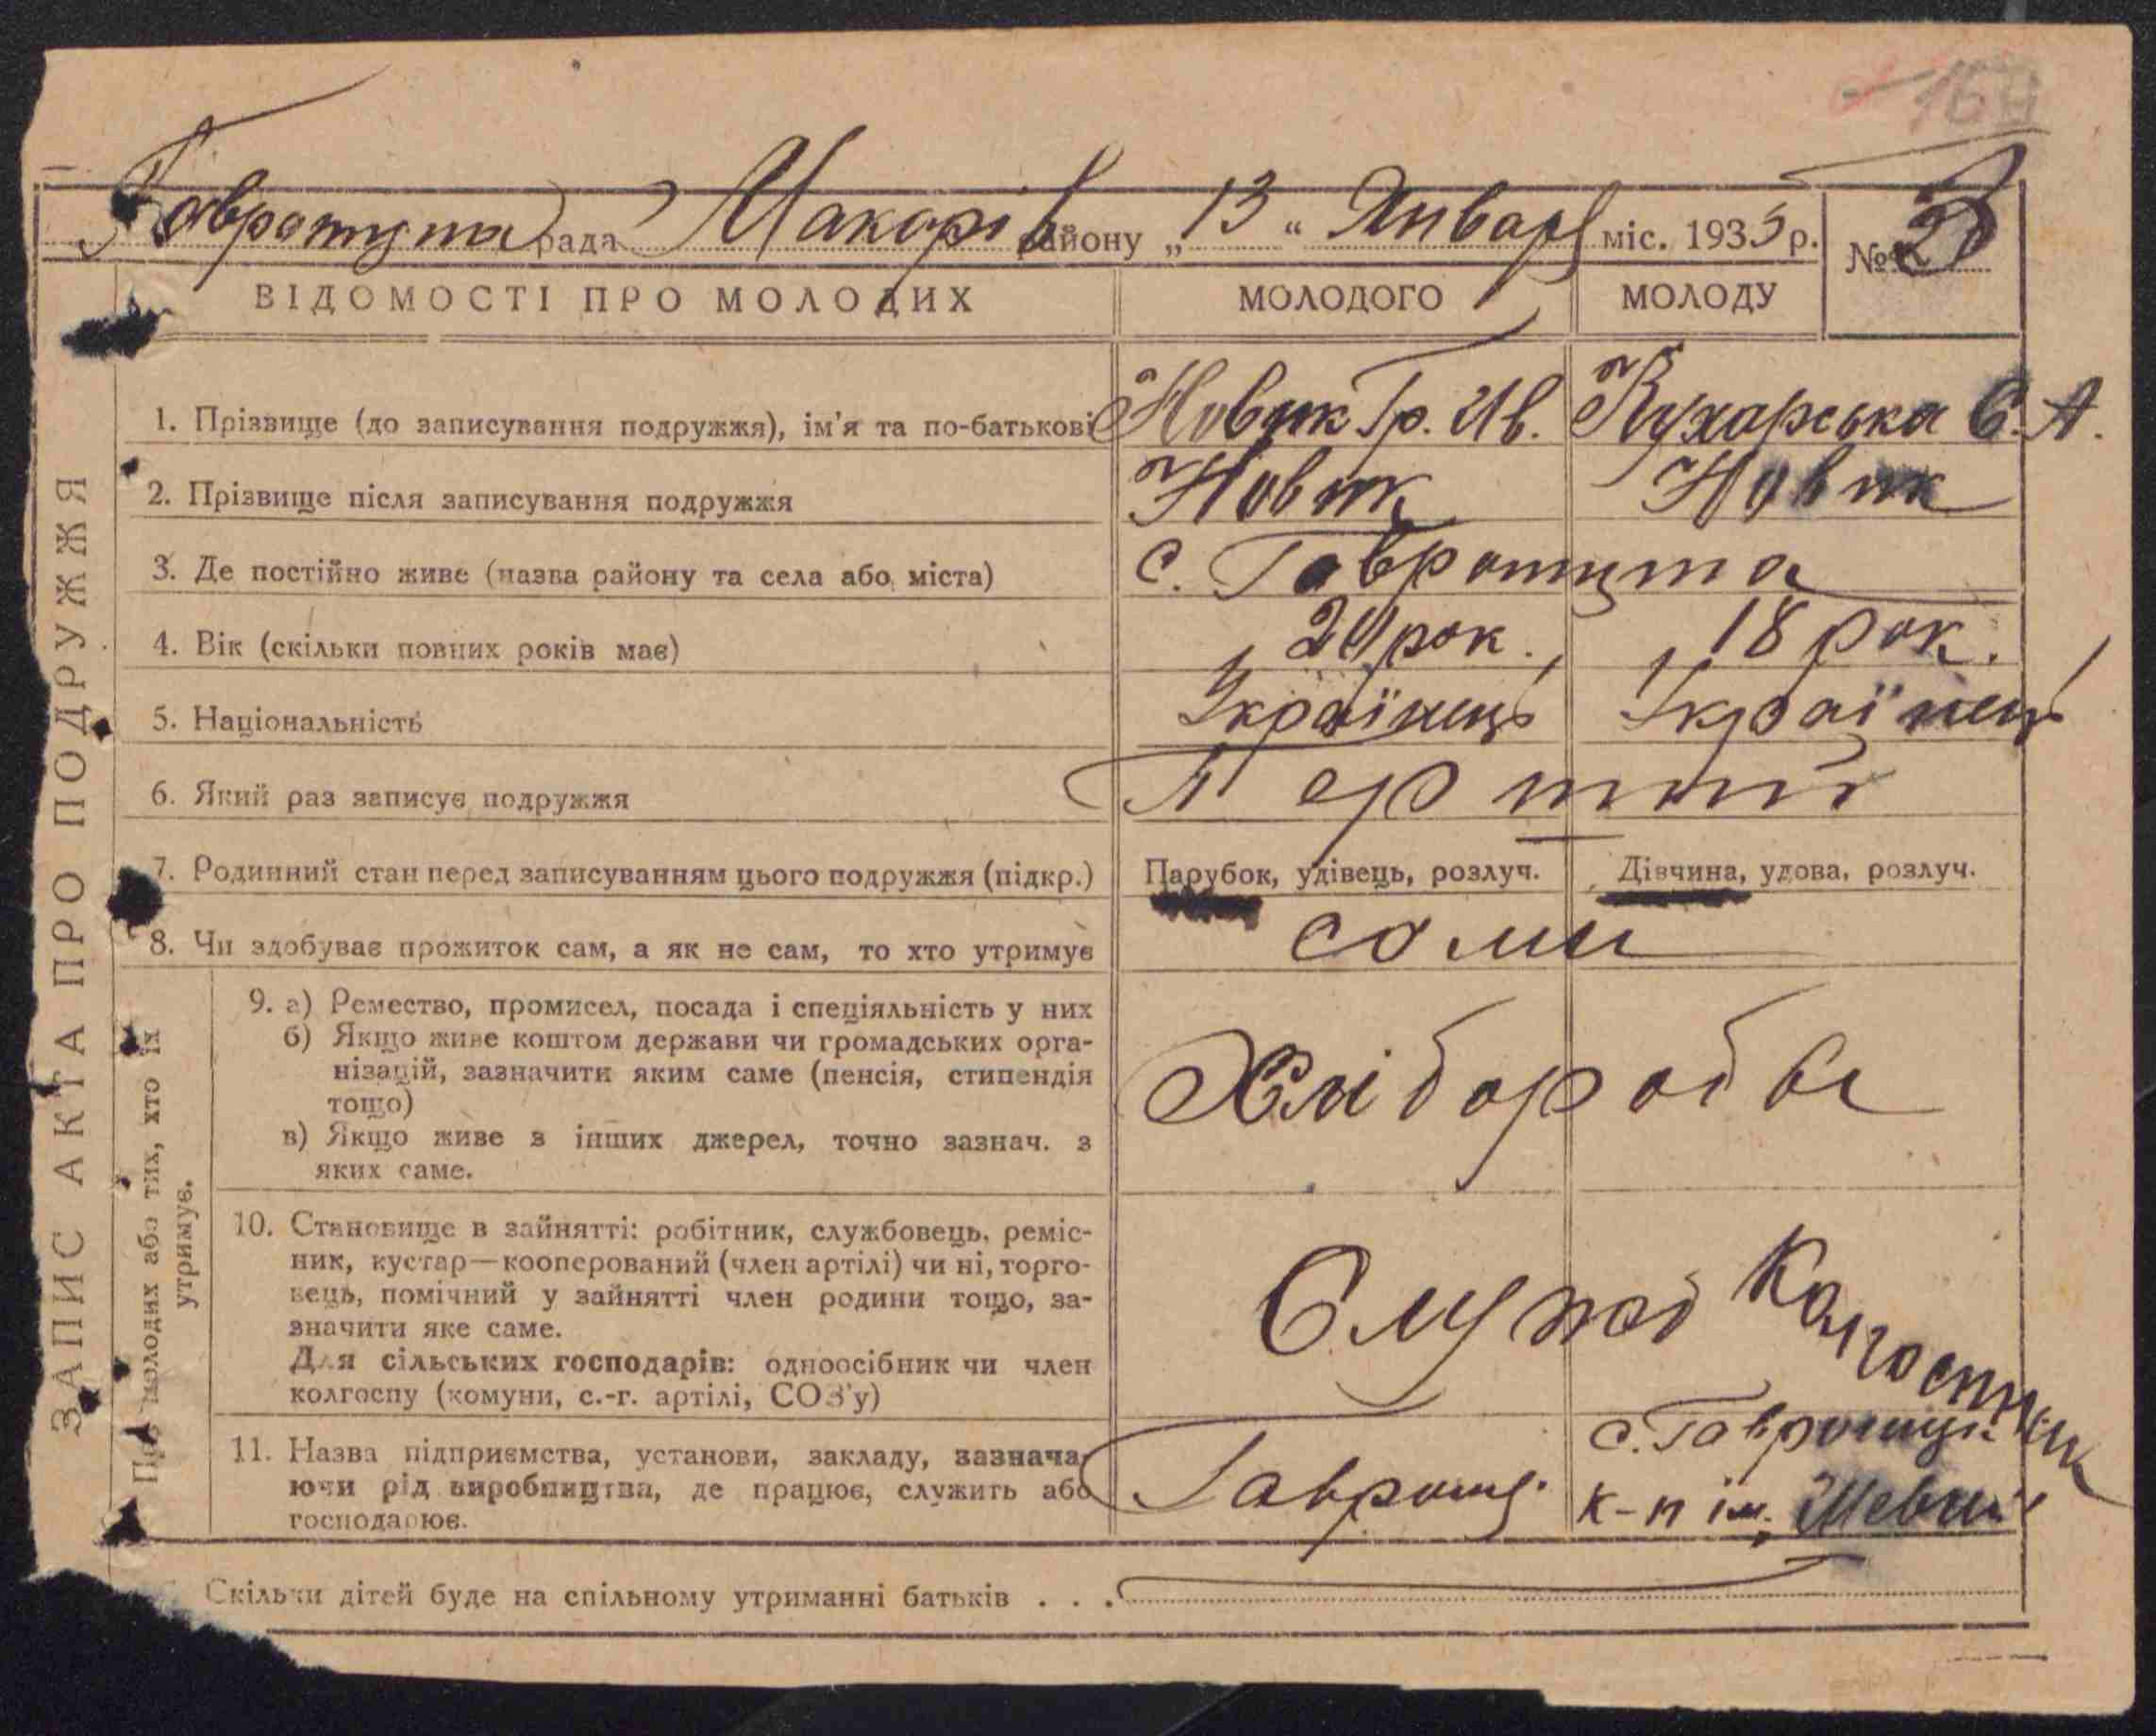 Гавротута рада Макарів району „13“ Январь міс. 1933 р. №
ВІДОМОСТІ ПРО МОЛОДИХ МОЛОДОГО МОЛОДУ
1. Прізвище (до записування подружжя), ім'я та по-батькові Новик Гр. Ив. Кухарська Є. А.
2. Прізвище після записування подружжя Новик Новик
3. Де постійно живе (назва району та села або міста) с. Гавротута
4. Вік (скільки повних років має) рок. 18 рок.
5. Національність Українець Українець
6. Який раз записує подружжя Перший
7. Родинний стан перед записуванням цього подружжя (підкр.) Парубок, удівець, розлуч. Дівчина, удова, розлуч.
8. Чи здобуває прожиток сам, а як не сам, то хто утримує сами
9. а) Ремество, промисел, посада і спеціяльність у них
б) Якщо живе коштом держави чи громадських орга-
нізацій, зазначити яким саме (пенсія, стипендія
тощо)
в) Якщо живе з інших джерел, точно зазнач. з
яких саме.
Хліборобы
10. Становище в зайнятті: робітник, службовець, реміс-
ник, кустар—кооперований (член артілі) чи ні, торго-
вець, помічний у зайнятті член родини тощо, за-
значити яке саме.
Для сільських господарів: одноосібник чи член
колгоспу (комуни, с.-г. артілі, СОЗ'у)
Служб Колгоспник
11. Назва підприємства, установи, закладу, зазнача-
ючи рід виробництва, де працює, служить або
господарює.
Гавротуц.
с. Гавротуц
к-п ім. Шевч
Скільки дітей буде на спільному утриманні батьків . . .
ЗАПИС АКТА ПРО ПОДРУЖЖЯ
Про молодих або тих, хто їх
утримує.